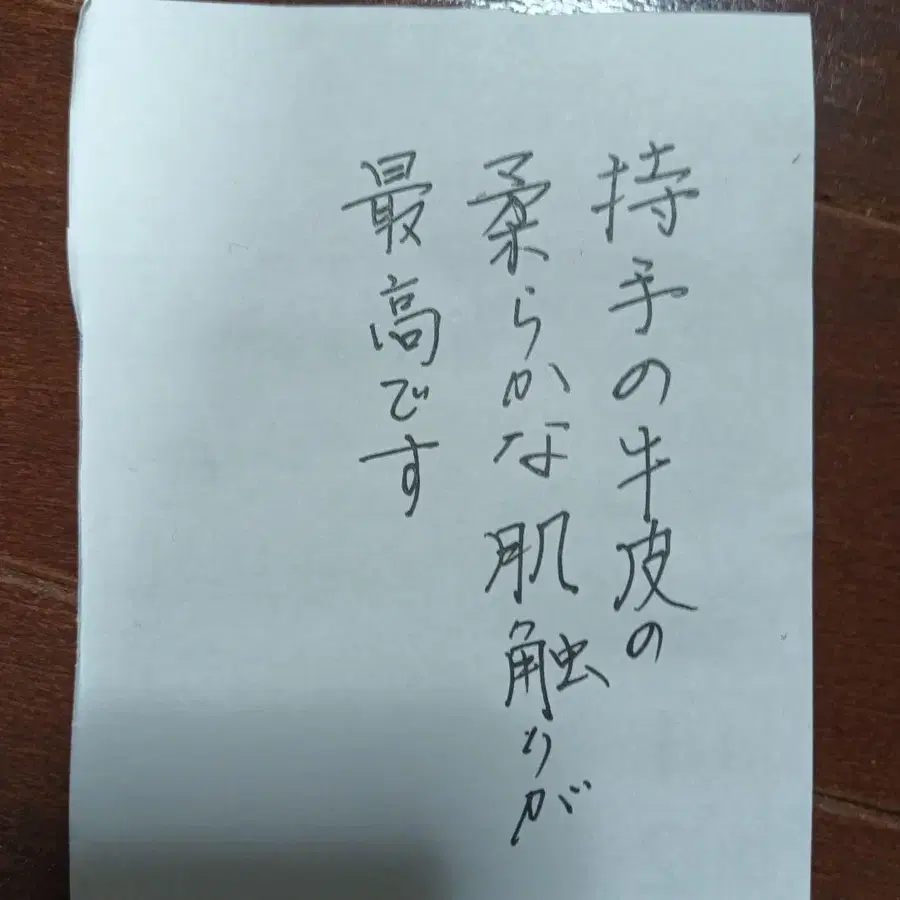 持手の牛皮の
柔らかな肌触りが
最高です